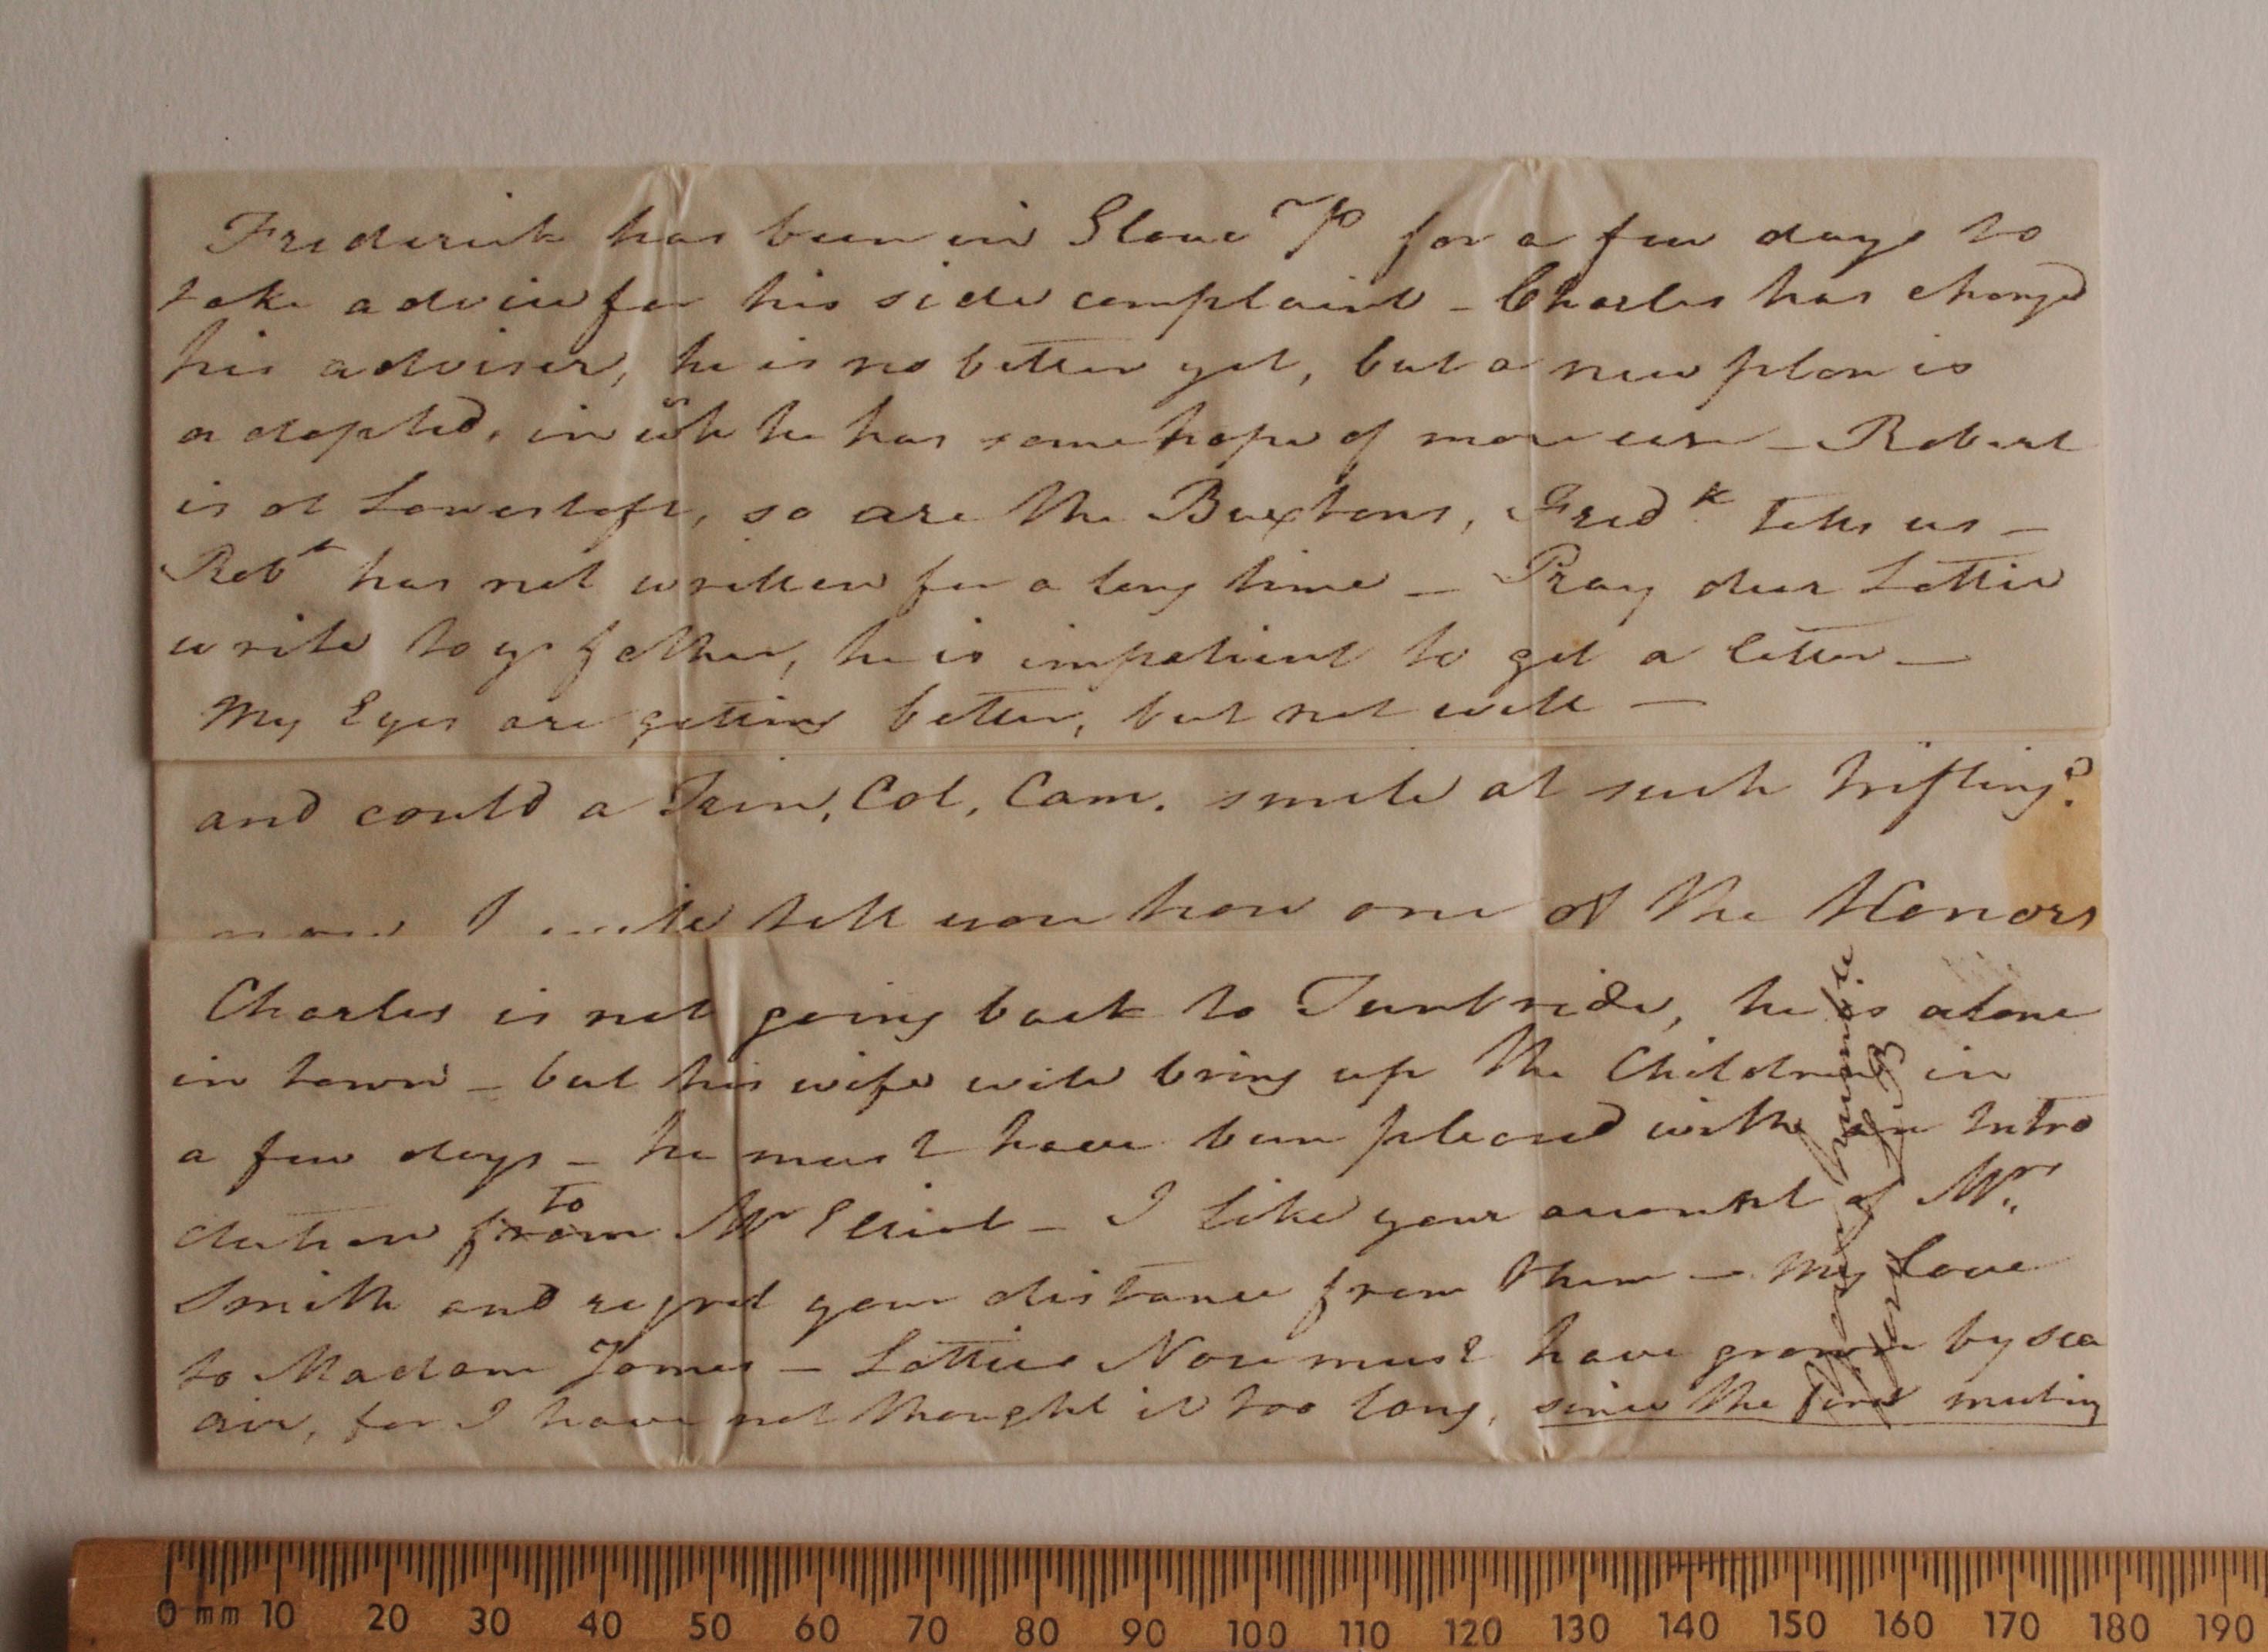 Frederick has been in Sloane St for a few days to
take advice for his side complaint _ Charles has changed
his adviser, he is no better yet, but a new plan is
adopted, in wh he has some hope of more use _ Robert
is at Lowestoft, so are the Buxtons, Fredk tells us _
Robt has not written for a long time _ Pray dear Lettie
write to yr father, he is impatient to get a letter _
My Eyes are getting better, but not well _
and could a Trin, Col, Cam. smile at such trifling?
I tell you how one of the Honors
Charles is not going back to Tunbridge, he is alone
in town _ but his wife will bring up the Children in
a few days _ he must have been pleased with an Intro
duction from to Mr Elliot _ I like your account of Mr
Smith and regret your distance from them _ My Love
to Madam James _ Letties Nose must have grown by sea
air, for I have not thought it too long, since the first meeting
0 mm 10 20 30 40 50 60 70 80 90 100 110 120 130 140 150 160 170 180 190